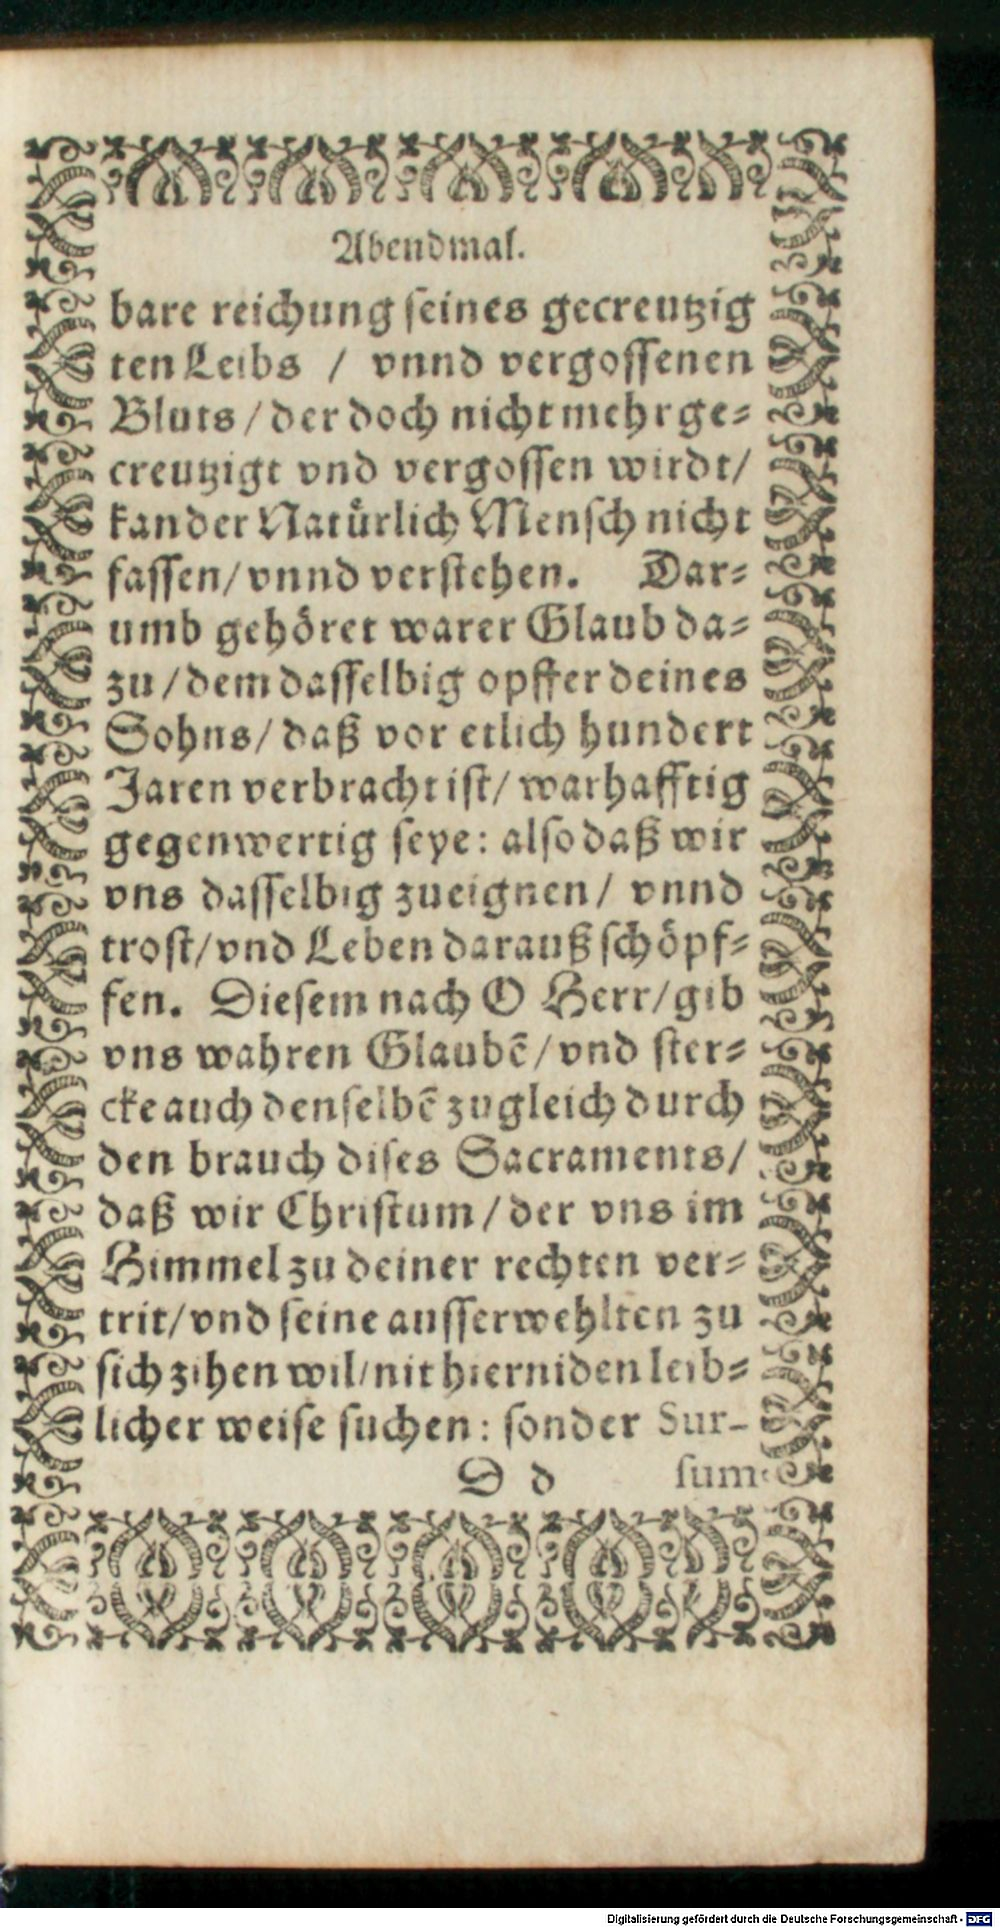 Abendmal.
bare reichung seines gecreutzig
ten Leibs / vnnd vergossenen
Bluts / der doch nicht mehr ge-
creutzigt vnd vergossen wirdt/
kan der Natürlich Mensch nicht
fassen/ vnnd verstehen. Dar-
umb gehöret warer Glaub da-
zu / dem dasselbig opffer deines
Sohns/ daß vor etlich hundert
Jaren verbracht ist/ warhafftig
gegenwertig seye: also daß wir
vns dasselbig zueignen/ vnnd
trost/ vnd Leben darauß schöpf-
fen. Diesem nach O Herr/ gib
vns wahren Glaubē/ vnd ster-
cke auch denselbē zugleich durch
den brauch dises Sacraments/
daß wir Christum / der vns im
Himmel zu deiner rechten ver-
trit/ vnd seine ausserwehlten zu
sich zihen wil/ nit hierniden leib-
licher weise suchen: sonder Sur-
D d sum-
Digitalisierung gefördert durch die Deutsche Forschungsgemeinschaft - DFG